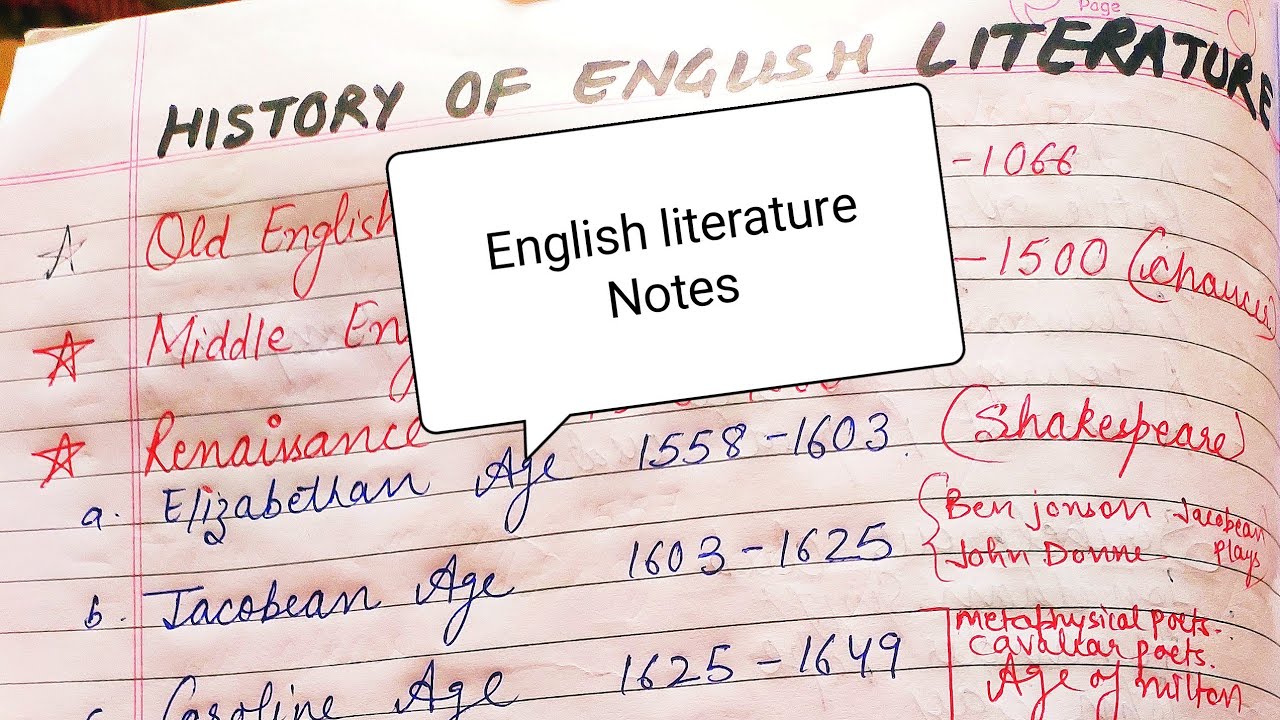 Page
HISTORY OF ENGLISH LITERATURE
Old English -1066
Middle Eng -1500 (Chaucer)
English literature
Notes
Renaissance
a. Elizabethan Age 1558-1603. (Shakespeare)
b. Jacobean Age 1603-1625 Ben jonson Jacobean plays
John Donne
Caroline Age 1625-1649 metaphysical poets.
cavaliar poets.
Age of milton